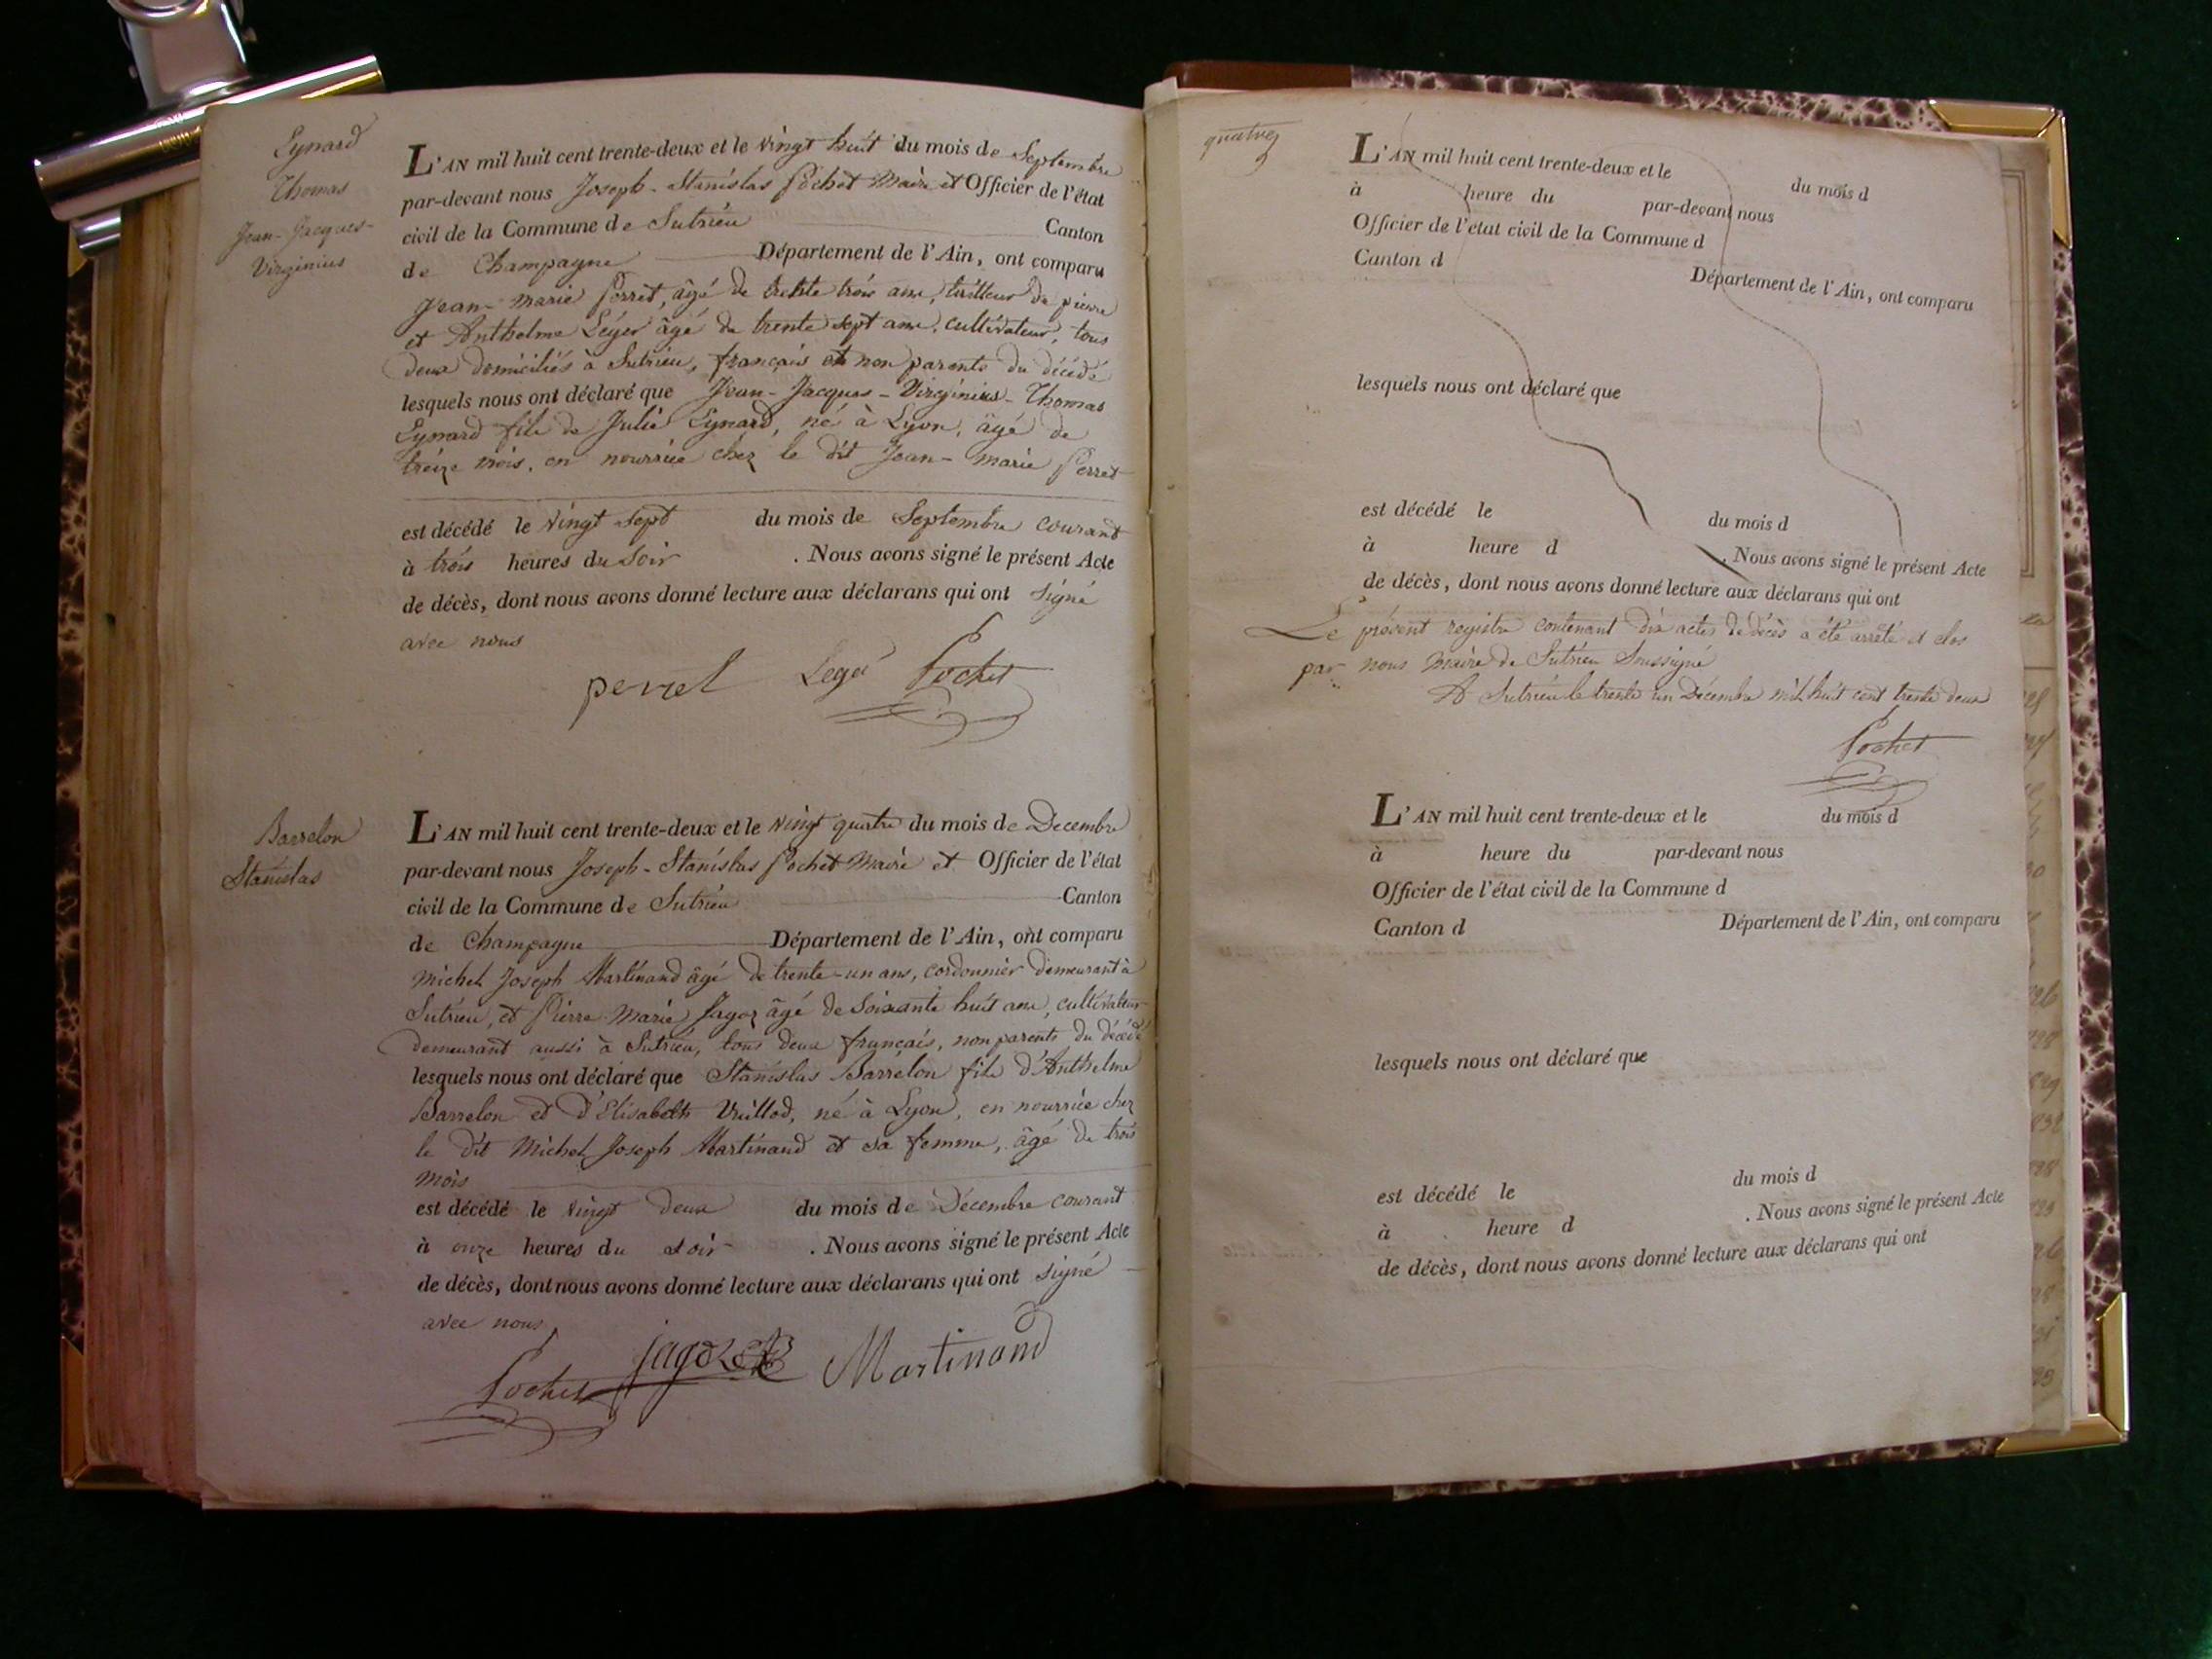 Eynard
Thomas
Jean-Jacques-
Virginius
L'AN mil huit cent trente-deux et le vingt huit du mois de Septembre
par-devant nous Joseph-Stanislas Pochet Maire et Officier de l'état
civil de la Commune de Sutrieu Canton
de Champagne Département de l'Ain, ont comparu
Jean-Marie Perret, âgé de trente trois ans, tailleur de pierre
et Anthelme Léger âgé de trente sept ans, cultivateur, tous
deux domiciliés à Sutrieu, français et non parents du décédé
lesquels nous ont déclaré que Jean-Jacques-Virginius-Thomas
Eynard fils de Julie Eynard, né à Lyon, âgé de
treize mois, en nourrice chez le dit Jean-Marie Perret
est décédé le vingt sept du mois de Septembre courant
à trois heures du soir . Nous avons signé le présent Acte
de décès, dont nous avons donné lecture aux déclarans qui ont signé
avec nous
perret Leger Pochet
Barrelon
Stanislas
L'AN mil huit cent trente-deux et le vingt quatre du mois de Decembre
par-devant nous Joseph-Stanislas Pochet Maire et Officier de l'état
civil de la Commune de Sutrieu Canton
de Champagne Département de l'Ain, ont comparu
Michel Joseph Martinand âgé de trente-un ans, cordonnier demeurant à
Sutrieu, et Pierre Marie Jagoz âgé de soixante huit ans, cultivateur
demeurant aussi à Sutrieu, tous deux français, non parents du décédé
lesquels nous ont déclaré que Stanislas Barrelon fils d'Anthelme
Barrelon et d'Elisabeth Vuillod, né à Lyon, en nourrice chez
le dit Michel Joseph Martinand et sa femme, âgé de trois
mois
est décédé le vingt deux du mois de Décembre courant
à onze heures du soir . Nous avons signé le présent Acte
de décès, dont nous avons donné lecture aux déclarans qui ont signé
avec nous
Pochet jagoz Martinand
quatre
L'AN mil huit cent trente-deux et le du mois d
à heure du par-devant nous
Officier de l'état civil de la Commune d
Canton d Département de l'Ain, ont comparu
lesquels nous ont déclaré que
est décédé le du mois d
à heure d . Nous avons signé le présent Acte
de décès, dont nous avons donné lecture aux déclarans qui ont
Le présent registre contenant dix actes de décès a été arrêté et clos
par nous Maire de Sutrieu Soussigné
A Sutrieu le trente un Décembre mil huit cent trente deux
Pochet
L'AN mil huit cent trente-deux et le du mois d
à heure du par-devant nous
Officier de l'état civil de la Commune d
Canton d Département de l'Ain, ont comparu
lesquels nous ont déclaré que
est décédé le du mois d
à heure d . Nous avons signé le présent Acte
de décès, dont nous avons donné lecture aux déclarans qui ont